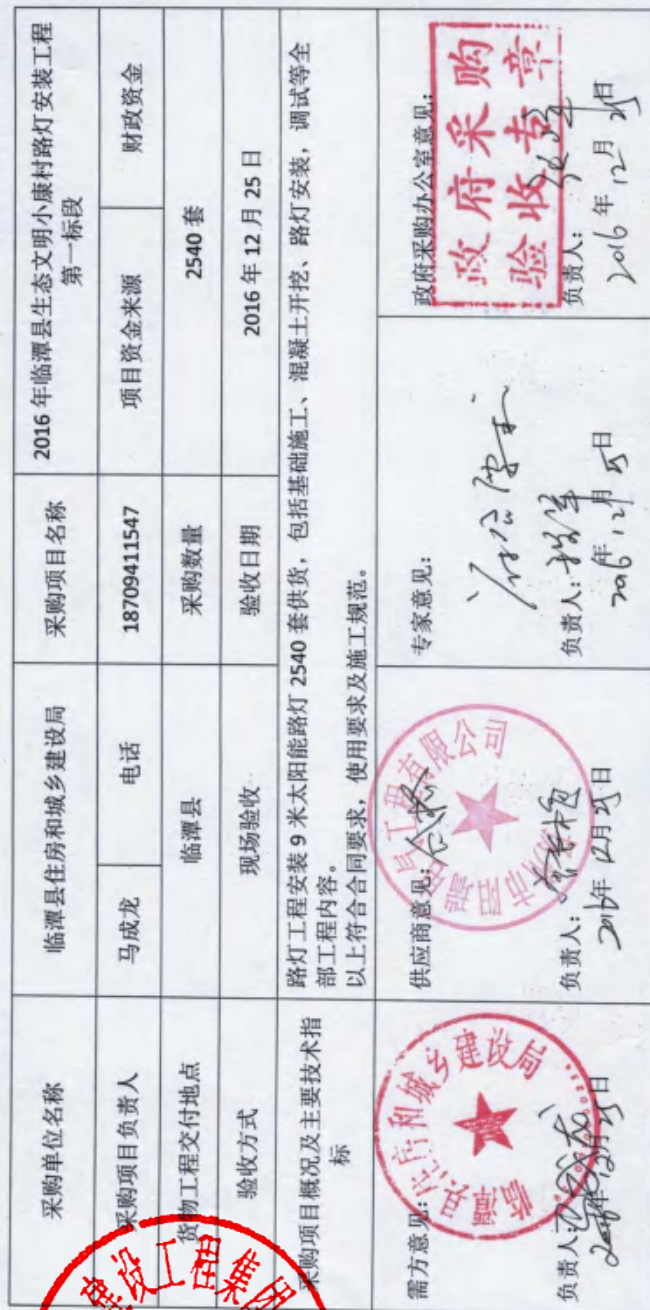 采购单位名称
临潭县住房和城乡建设局
采购项目名称
2016 年临潭县生态文明小康村路灯安装工程
第一标段
采购项目负责人
马成龙
电话
18709411547
项目资金来源
财政资金
货物工程交付地点
临潭县
采购数量
2540 套
验收方式
现场验收
验收日期
2016 年 12 月 25 日
采购项目概况及主要技术指
标
路灯工程安装 9 米太阳能路灯 2540 套供货，包括基础施工、混凝土开挖、路灯安装，调试等全
部工程内容。
以上符合合同要求，使用要求及施工规范。
需方意见：
临潭县住房和城乡建设局
负责人：
2016年12月25日
供应商意见：合格
电气工程有限公司
负责人：
2016年12月25日
专家意见：
负责人：
2016年12月25日
政府采购办公室意见：
政府采购
验收专章
负责人：
2016年12月25日
建设工程集团